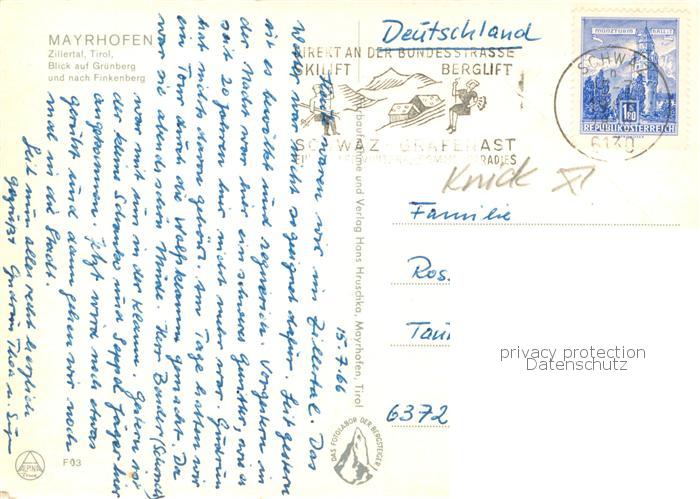 MAYRHOFEN
Zillertal, Tirol,
Blick auf Grünberg
und nach Finkenberg
Deutschland
DIREKT AN DER BUNDESSTRASSE
SKILIFT BERGLIFT
SCHWAZ - GRAFENAST
MÜNZTURM HALL I. T.
1.80
REPUBLIK ÖSTERREICH
SCHWAZ
6130
Knick XI
15.7.66
Heute waren wir im Zillertal. Das
Wetter war nicht so geeignet dafür. Seit gestern
ist es bewölkt und regnerisch. Vorgestern in
der Nacht war hier ein schweres Gewitter, wie es
seit 20 Jahren hier nicht mehr war. Gudrun
hat nichts davon gehört. Am Tage hatten wir
eine Tour durch die Wolfsklamm gemacht. Da
war sie abends sehr müde. Herr Bauder (Schwech)
war mit uns in der Klamm. Gestern ist
der kleine Schranko und Seppl Jäger hier
angekommen. Jetzt wird noch etwas
geruht und dann gehen wir noch
mal in die Stadt.
Seid nun alles recht herzlich
gegrüßt Gudrun, Thea u.
Farbaufnahme und Verlag Hans Hruschka, Mayrhofen, Tirol
Familie
Ros.
6372
privacy protection
Datenschutz
DAS FOTOLABOR DER BERGSTEIGER
ALPINA
F 03